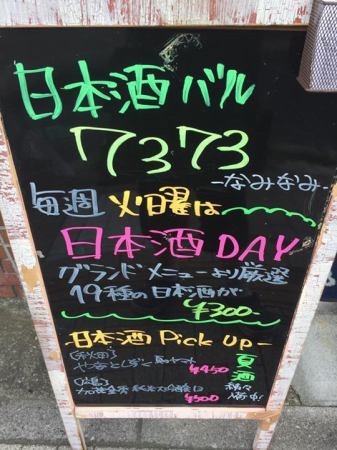 日本酒バル
7373
-なみなみ-
毎週 火曜は
日本酒 DAY
グランドメニューより厳選
19種の日本酒が
¥300-
-日本酒 Pick Up-
[秋田]
やまとしずく 夏のヤマト
¥450
¥500
夏酒